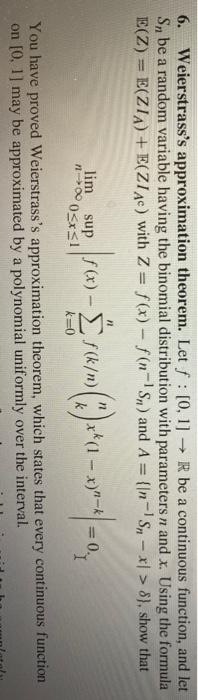 6. Weierstrass's approximation theorem. Let f : [0, 1] → ℝ be a continuous function, and let
Sₙ be a random variable having the binomial distribution with parameters n and x. Using the formula
𝔼(Z) = 𝔼(ZI_A) + 𝔼(ZI_{Aᶜ}) with Z = f(x) − f(n⁻¹Sₙ) and A = {|n⁻¹Sₙ − x| > δ}, show that
lim_{n→∞} sup_{0≤x≤1} |f(x) − ∑_{k=0}^{n} f(k/n) (n k) x^k(1 − x)^{n−k}| = 0.
You have proved Weierstrass's approximation theorem, which states that every continuous function
on [0, 1] may be approximated by a polynomial uniformly over the interval.